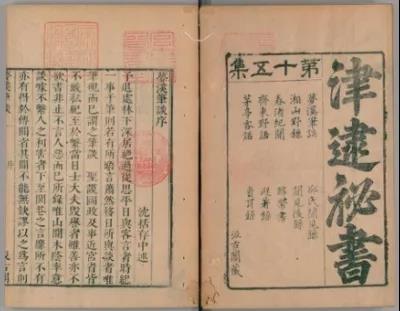 津逮祕書
第十五集
夢溪筆談
湘山野錄
春渚紀聞
齊東野語
茅亭客話
邵氏聞見錄
聞見後錄
汲古閣藏
夢溪筆談序
沈括存中述
予退處林下深居絕過從思平日與客言者時紀
一事于筆則若有所晤言蕭然移日所與談者唯
筆硯而已謂之筆談 聖謨國政及事近宮省皆
不敢私紀至於繫當日士大夫毀譽者雖善亦不
欲書非止不言人惡而已所錄唯山間木蔭率意
談噱不繫人之利害者下至閭巷之言靡所不有
亦有得於傳聞者其間不能無缺謬以之為言
夢溪筆談 序 汲古閣